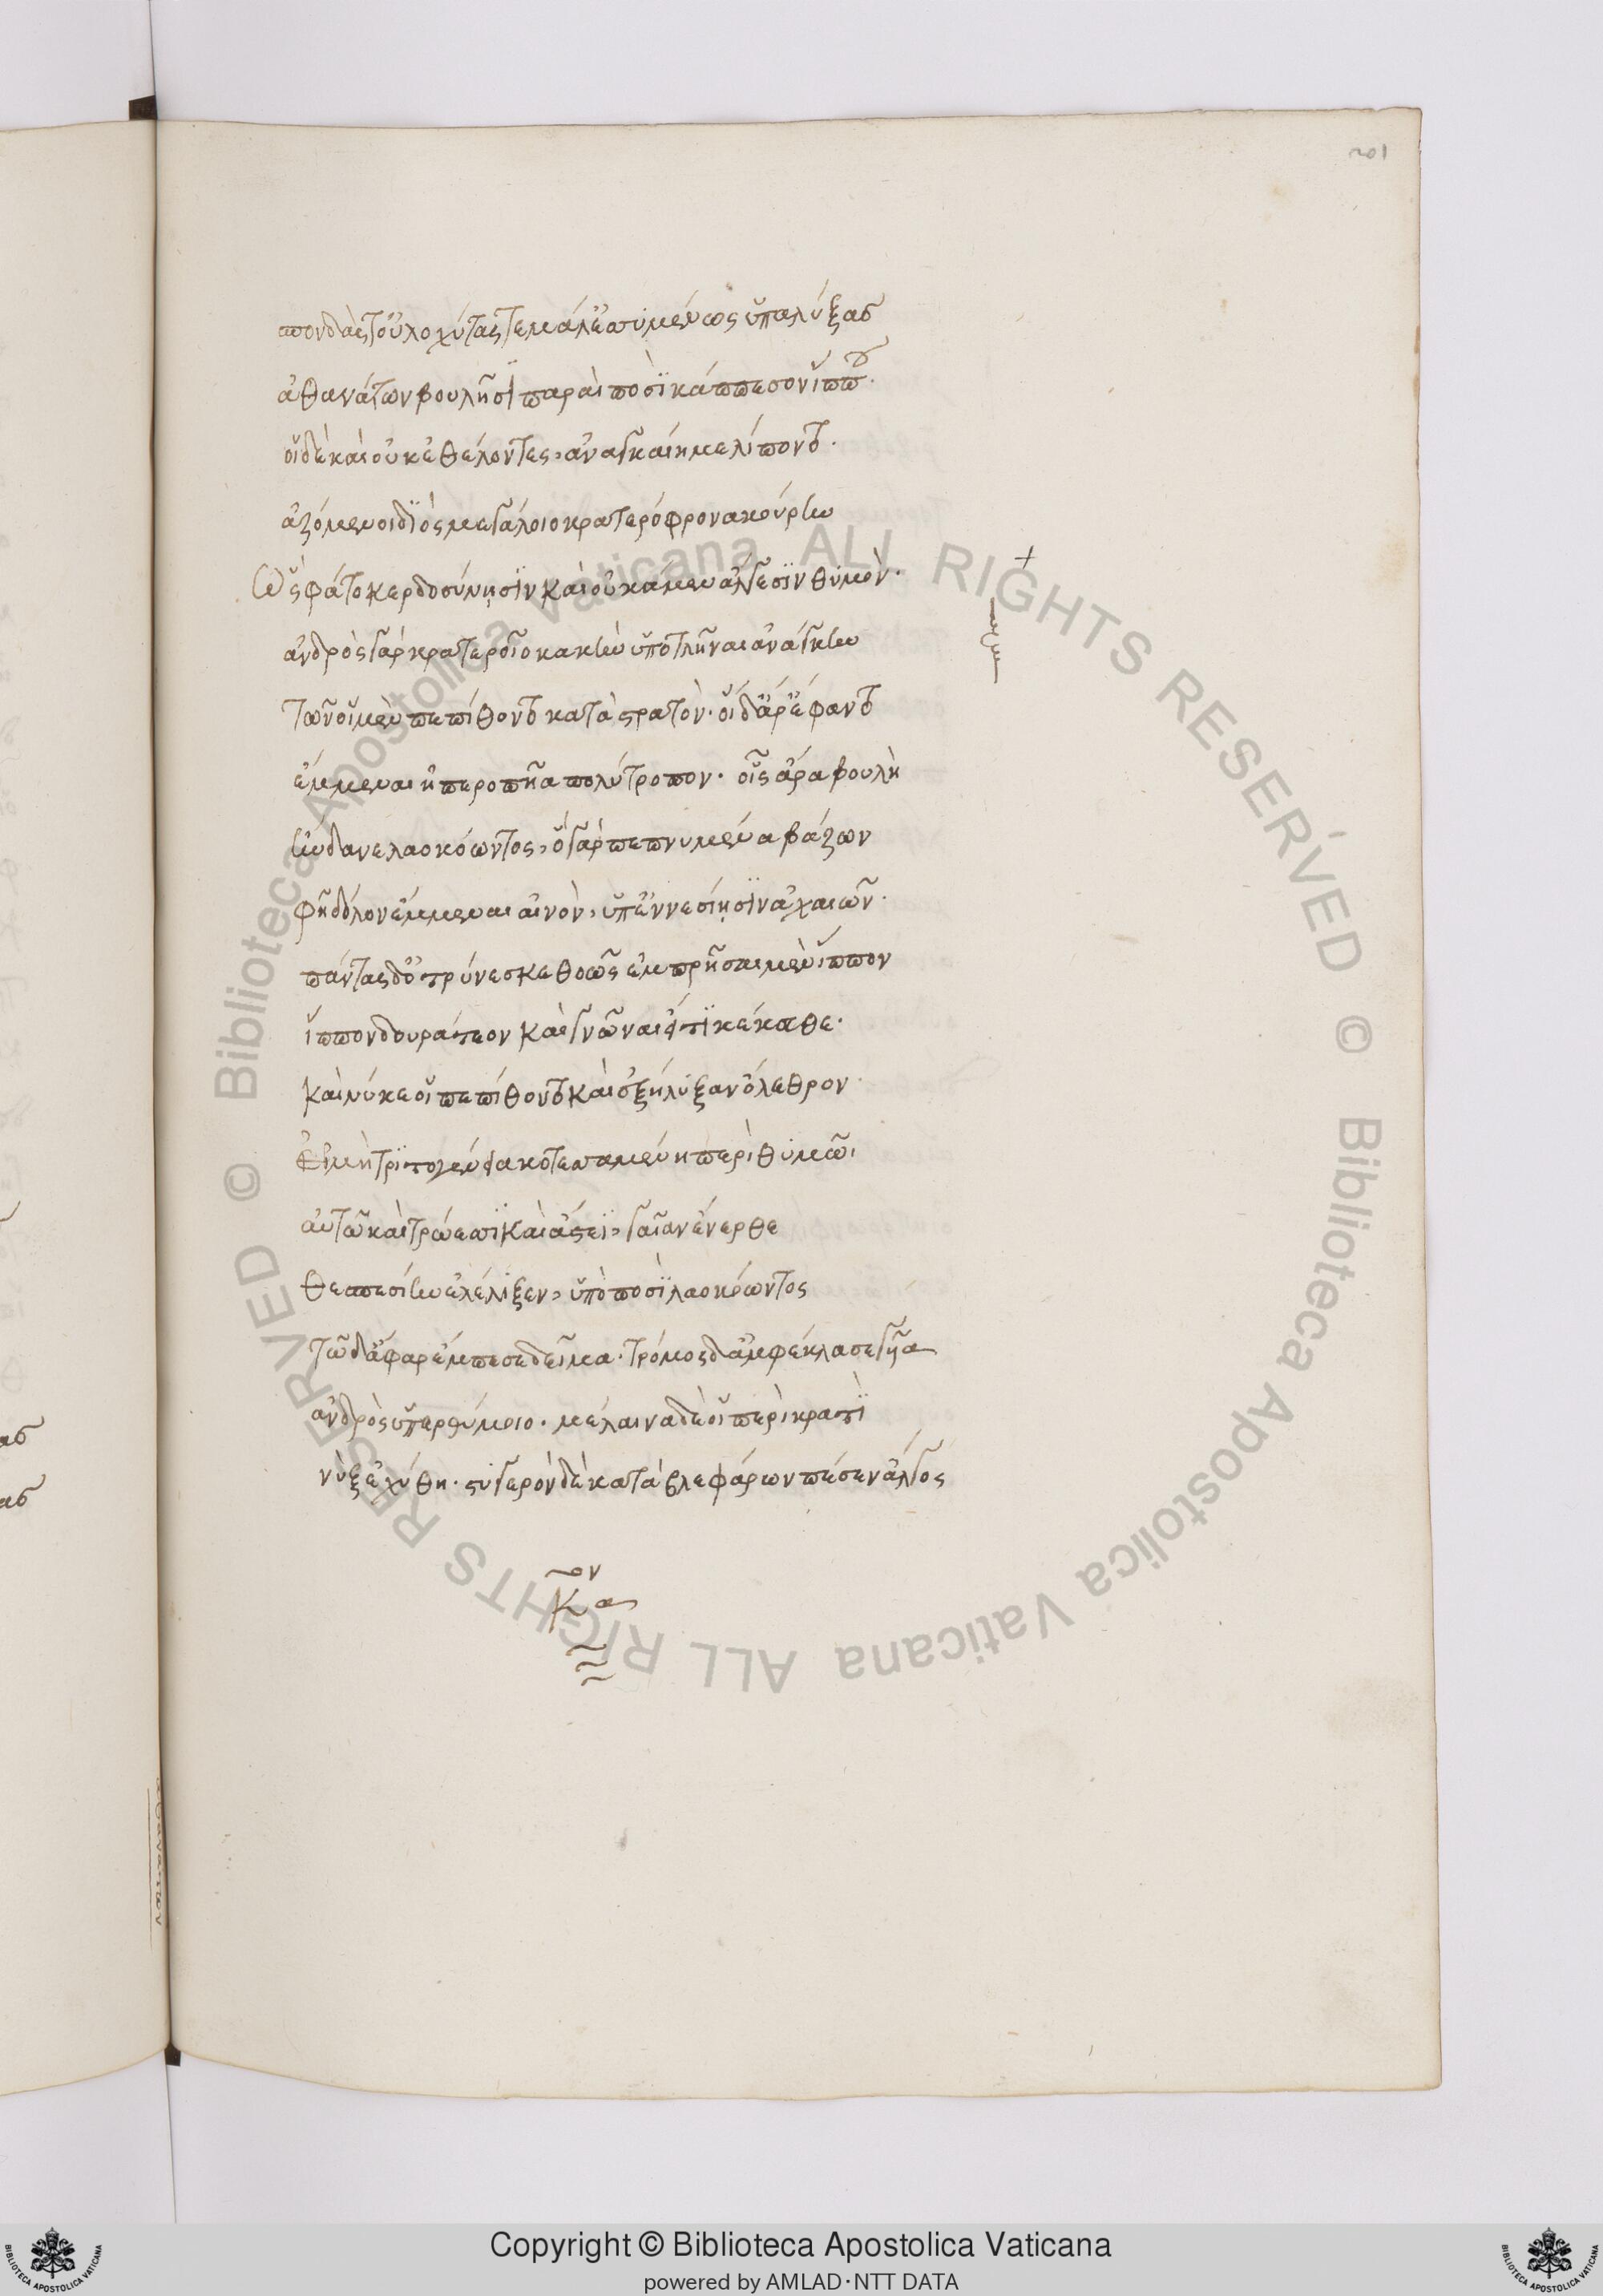 201
σπονδὰς τ' οὐλοχύτας τε μάλ' ἐσσυμένως ὑπαλύξας
ἀθανάτων βουλῆσι παραὶ ποσὶ κάππεσον ἵππου.
οἱ δὲ καὶ οὐκ ἐθέλοντες, ἀναγκαίη με λίποντο.
ἁζόμενοι διὸς μεγάλοιο κρατερόφρονα κούρην
Ὣς φάτο κερδοσύνησιν καὶ οὐ κάμεν ἄλγεσιν θυμόν.
ἀνδρὸς γὰρ κρατεροῖο κακὴν ὑποτλῆναι ἀνάγκην
τῶν οἱ μὲν πεπίθοντο κατὰ στρατόν. οἱ δ' ἄρ' ἔφαντο
ἔμμεναι ἠπεροπῆα πολύτροπον. οἷς ἄρα βουλὴ
ἥνδανε λαοκόωντος, ὁ γὰρ πεπνυμένα βάζων
φῆ δόλον ἔμμεναι αἰνόν, ὑπ' ἐννεσίησιν ἀχαιῶν.
πάντας δ' ὀτρύνεσκε θοῶς ἐμπρῆσαι μὲν ἵππον
ἵππον δουράτεον καὶ γνῶναι εἴ τι κέκαθε.
καί νύ κέ οἱ πεπίθοντο καὶ ἐξήλυξαν ὄλεθρον.
εἰ μὴ τριτογένεια κοτεσσαμένη περὶ θυμῶι
αὐτῶ καὶ τρώεσσι καὶ ἄστεϊ, γαῖαν ἔνερθε
θεσπεσίην ἐλέλιξεν, ὑπὸ ποσὶ λαοκόωντος
τῶ δ' ἄφαρ ἔμπεσε δεῖμα. τρόμος δ' ἀμφέκλασε γυῖα
ἀνδρὸς ὑπερθύμοιο. μέλαινα δὲ οἱ περὶ κρατὶ
νὺξ ἐχύθη. στυγερὸν δὲ κατὰ βλεφάρων πέσεν ἄλγος
© Biblioteca Apostolica Vaticana ALL RIGHTS RESERVED © Biblioteca Apostolica Vaticana ALL RIGHTS RESERVED
Copyright © Biblioteca Apostolica Vaticana
powered by AMLAD·NTT DATA
BIBLIOTECA APOSTOLICA VATICANA
BIBLIOTECA APOSTOLICA VATICANA